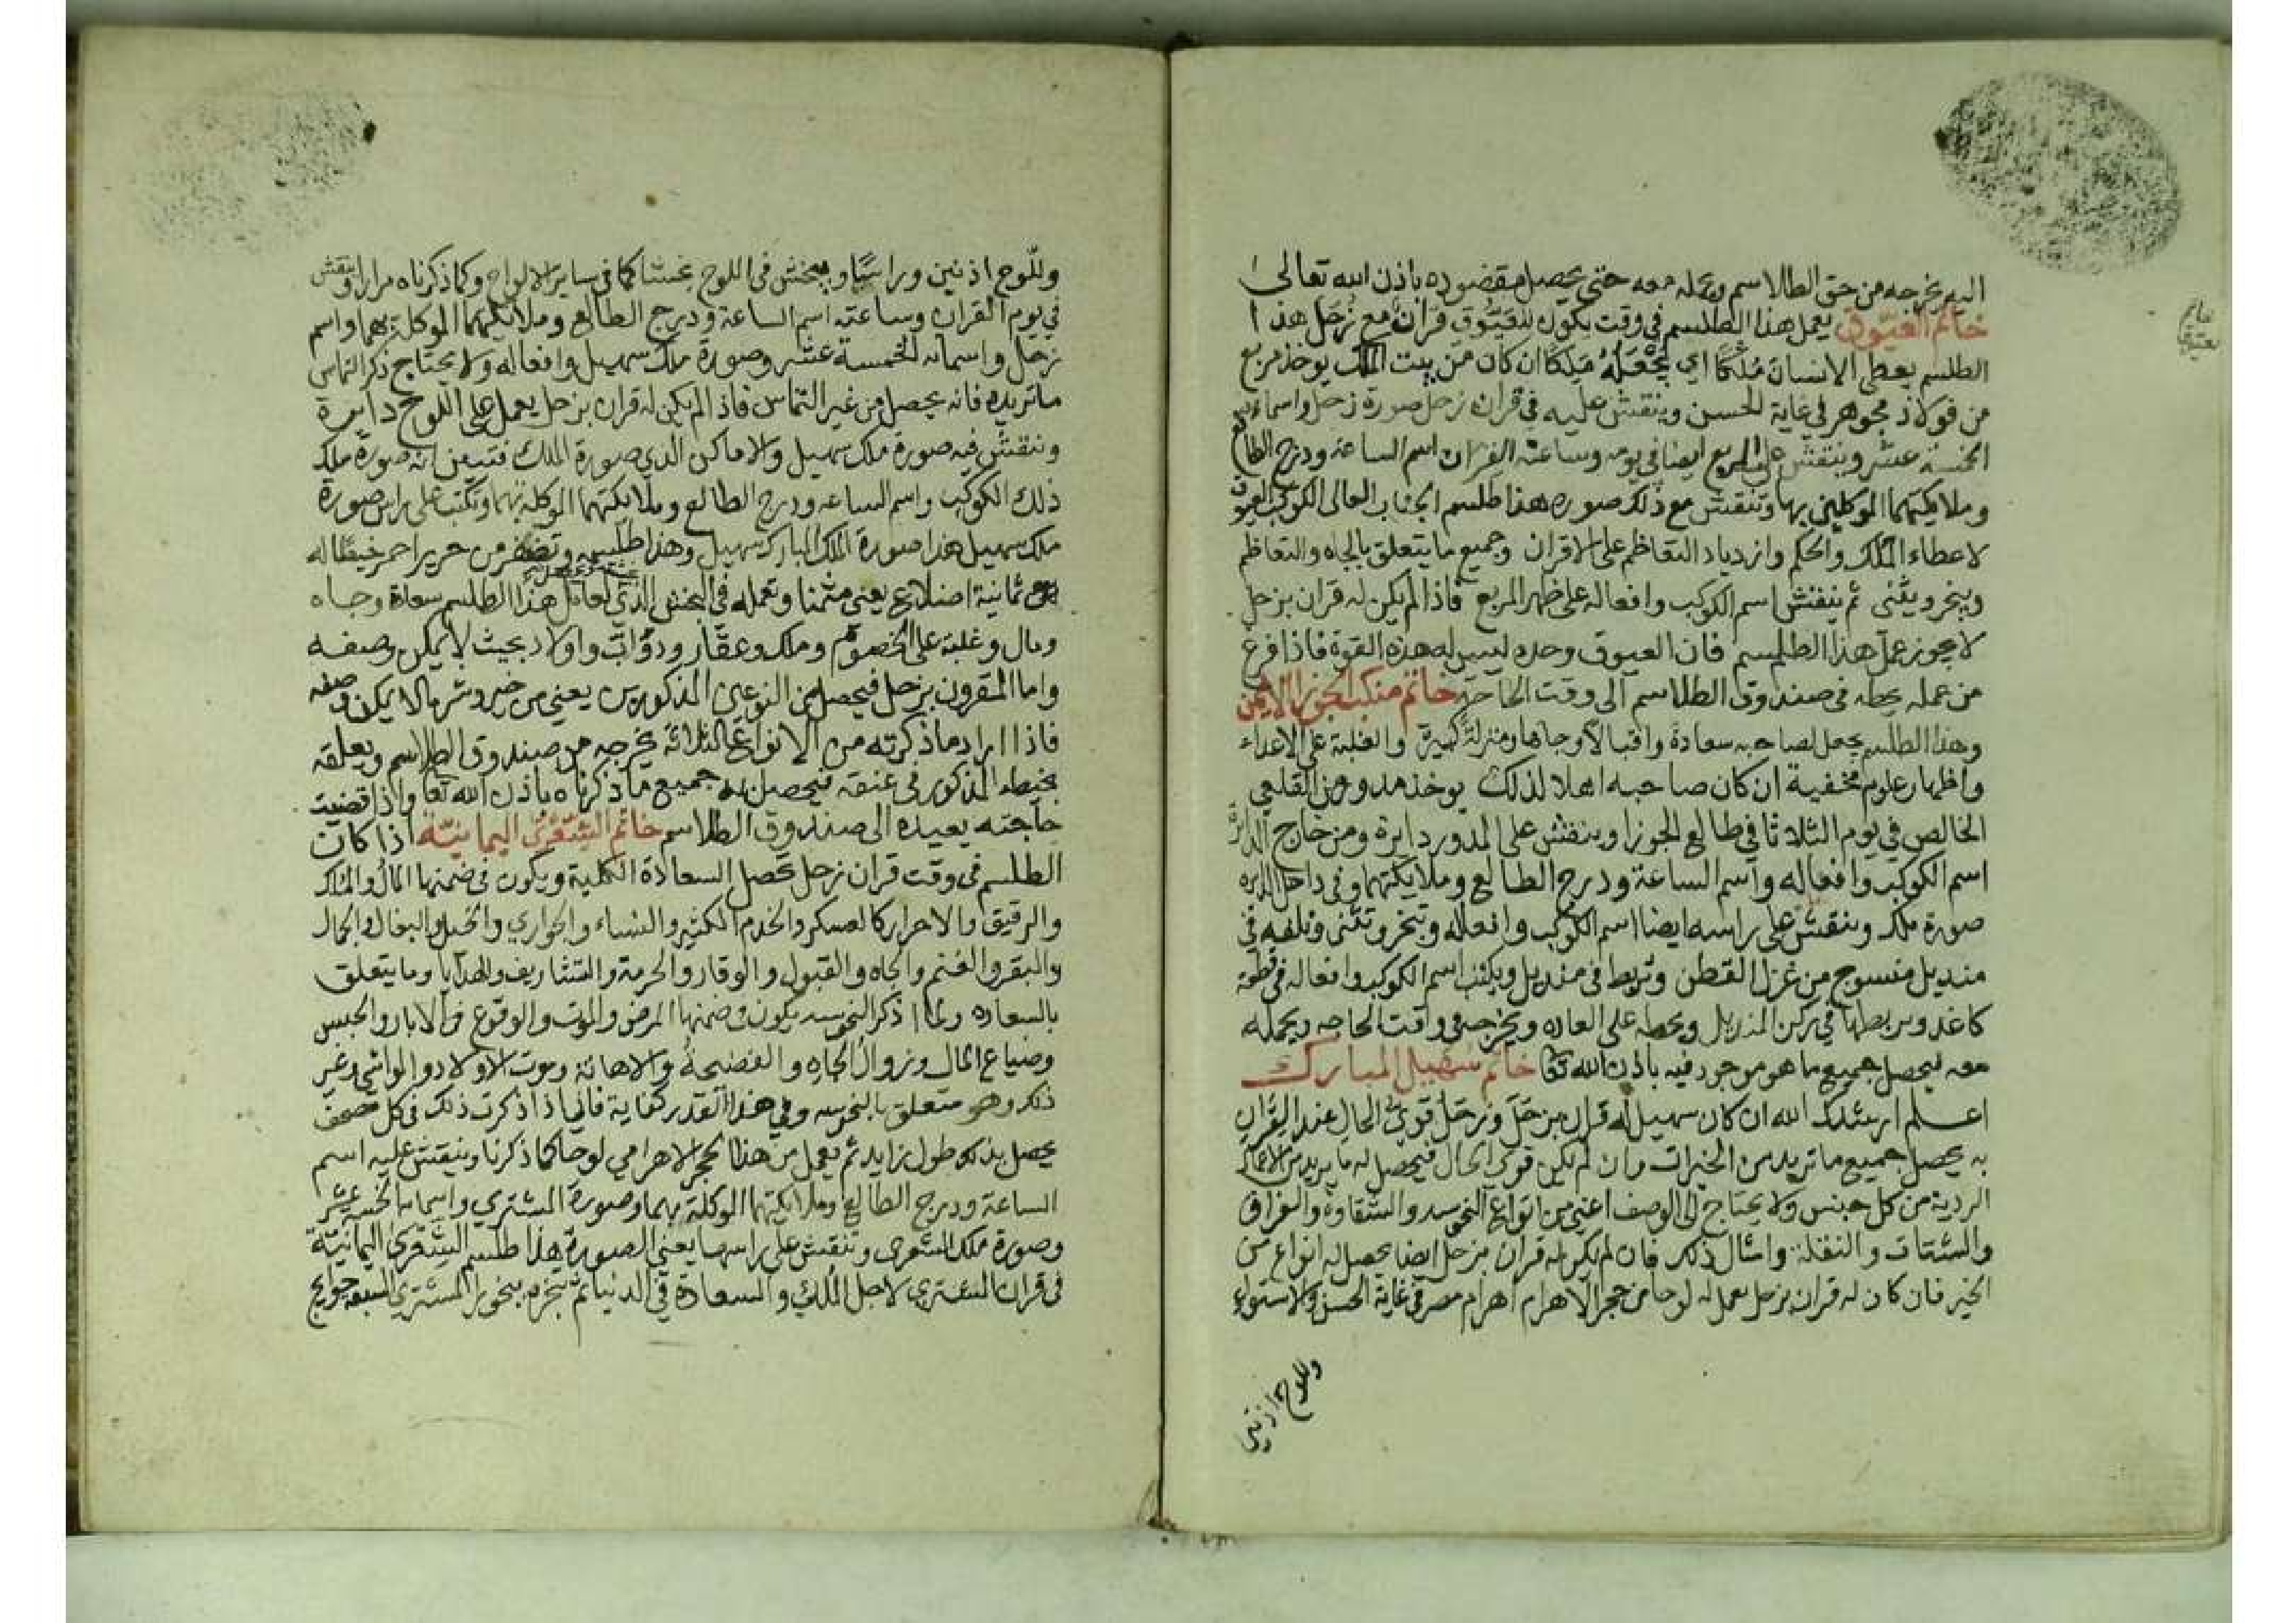 اليه يخرجه من حق الطالاسم ويحمله معه حتى يحصل مقصوده باذن الله تعالى
خاتم العيّوق يعمل هذا الطلسم في وقت يكون للعيّوق قران مع زحل هذا
الطلسم يعطى الانسان مُلكًا اي يجعله مَلكًا ان كان من بيت الملك يوخذ مربع
من فولاذ مجوهر في غاية الحسن وينقش عليه في قران زحل صورة زحل واسماء
الخمسة عشر وينقش على المربع ايضا في يومه وساعته القران اسم الساعة ودرج الطالع
وملايكتهما الموكلين بها وتنقش مع ذلك صوره هذا طلسم الجناب العالى الكوكب العيوق
لاعطاء المُلك والحكم وازدياد التعاظم على الاقران وجميع ما يتعلق بالجاه والتعاظم
ويبخر ويثنى ثم ينقش اسم الكوكب وافعاله على ظهر المربع فاذا لم يكن له قران بزحل
لا يجوز عمل هذا الطلسم فان العيوق وحده ليس له هذه القوة فاذا فرغ
من عمله يحطه في صندوق الطلاسم الى وقت الحاجة خاتم منكب الجوزا الايمن
وهذا الطلسم يجعل لصاحبه سعادة واقبالا وجاها ومنزلة كبيرة والغلبة على الاعداء
واظهار علوم مخفية ان كان صاحبه اهلا لذلك يوخذ مدور من القلعي
الخالص في يوم الثلاثا في طالع الجوزا وينقش على المدور دايرة ومن خارج الدايرة
اسم الكوكب وافعاله واسم الساعة ودرج الطالع وملايكتهما وفي داخل الدايره
صورة ملك وينقش على راسه ايضا اسم الكوكب وافعاله وتبخر وتثنى وتلفه في
منديل منسوج من غزل القطن وتربط في منديل ويكتب اسم الكوكب وافعاله في قطعة
كاغد وبربطها في ركن المنديل ويحطه على العاده ويخرجه في وقت الحاجه ويحمله
معه ليحصل جميع ما هو موجود فيه باذن الله تعا خاتم سهيل المبارك
اعلم ارشدك الله ان كان سهيل له قران بزحل وزحل قوي الحال عند القران
به يحصل جميع ما تريد من الخيرات وان لم يكن قوي الحال فيحصل له ما يريد من الاعمال
الردية من كل جنس ولا يحتاج الى الوصف اعني من انواع النحوسه والشقاوة والفراق
والشتات والنقلة وامثال ذلك فان لم يكن له قران بزحل ايضا يحصل له انواع من
الخير فان كان له قران بزحل يعمل له لوحا من حجر الاهرام اهرام مصر في غاية الحسن والاستواء
وللوح اذنين
خاتم العيوق
وللّوح اذنين وراسًا و يبخش في اللوح بخشا كما في ساير الالواح وكما ذكرناه مرارا وتنقش
في يوم القران وساعته اسم الساعة ودرج الطالع وملايكتهما الموكلة بهما واسم
زحل واسمائه الخمسة عشر وصورة ملك سهيل وافعاله ولا يحتاج ذكر التماس
ما تريده فانه يحصل من غير التماس فاذا لم يكن له قران بزحل يعمل على اللوح دايرة
وتنقش فيه صورة ملك سهيل والاماكن الذي صورة الملك فتبين انه صورة ملك
ذلك الكوكب واسم الساعه ودرج الطالع وملايكتهما الوكلة بهما وتكتب على راس صورة
ملك سهيل هذا صورة الملك المبارك سهيل وهذا طلسمه وتضفر من حرير احمر خيطا له
ثمانية اضلاع يعني مثمنا وتعمله في البخش الذي هذا الطلسم سعادة وجاه
ومال وغلبة على الخصوم وملك وعقار ودوابّ واولاد بحيث لا يمكن وصفه
واما المقرون بزحل فيحصل من النوعين المذكورين يعني من خير وشر مالا يمكن وصفه
فاذا اراد ما ذكرته من الانواع الثلاثة يخرجه من صندوق الطلاسم ويعلقه
بخيطه المذكور في عنقه فيحصل له جميع ما ذكرناه باذن الله تعا واذا قضيت
حاجته يعيده الى صندوق الطلاسم خاتم الشعرى اليمانيّة اذا كان
الطلسم في وقت قران زحل تحصل السعادة الكلية ويكون في ضمنها المال والملك
والرقيق والاحرار كالعسكر والخدم الكثير والنساء والجواري والخيل والبغال والجمال
والبقر والغنم والجاه والقبول والوقار والحرمة والتشاريف والهدايا وما يتعلق
بالسعاده ولما ذكر النحوسه يكون في ضمنها المرض والموت والوقوع في الابار والحبس
وضياع المال وزوال الجاه والفضيحة والاهانة وموت الاولاد والمواشي وغير
ذلك وهو متعلق بالنحوسه وفي هذا القدر كفاية فاني اذا ذكرت ذلك في كل مصحف
يحصل بذلك طول زايد ثم يعمل من هذا الحجر الاهرامي لوحا كما ذكرنا وينقش عليه اسم
الساعة ودرج الطالع وملايكتهما الوكلة بهما وصورة المشتري واسمائه الخمسة عشر
وصورة ملك الشعرى وتنقش على راسها يعني الصورة هذا طلسم الشعرى اليمانيّة
في قران المشتري لاجل المُلك والسعادة في الدنيا ثم تبخره ببخور المشتري السبعه حوايج